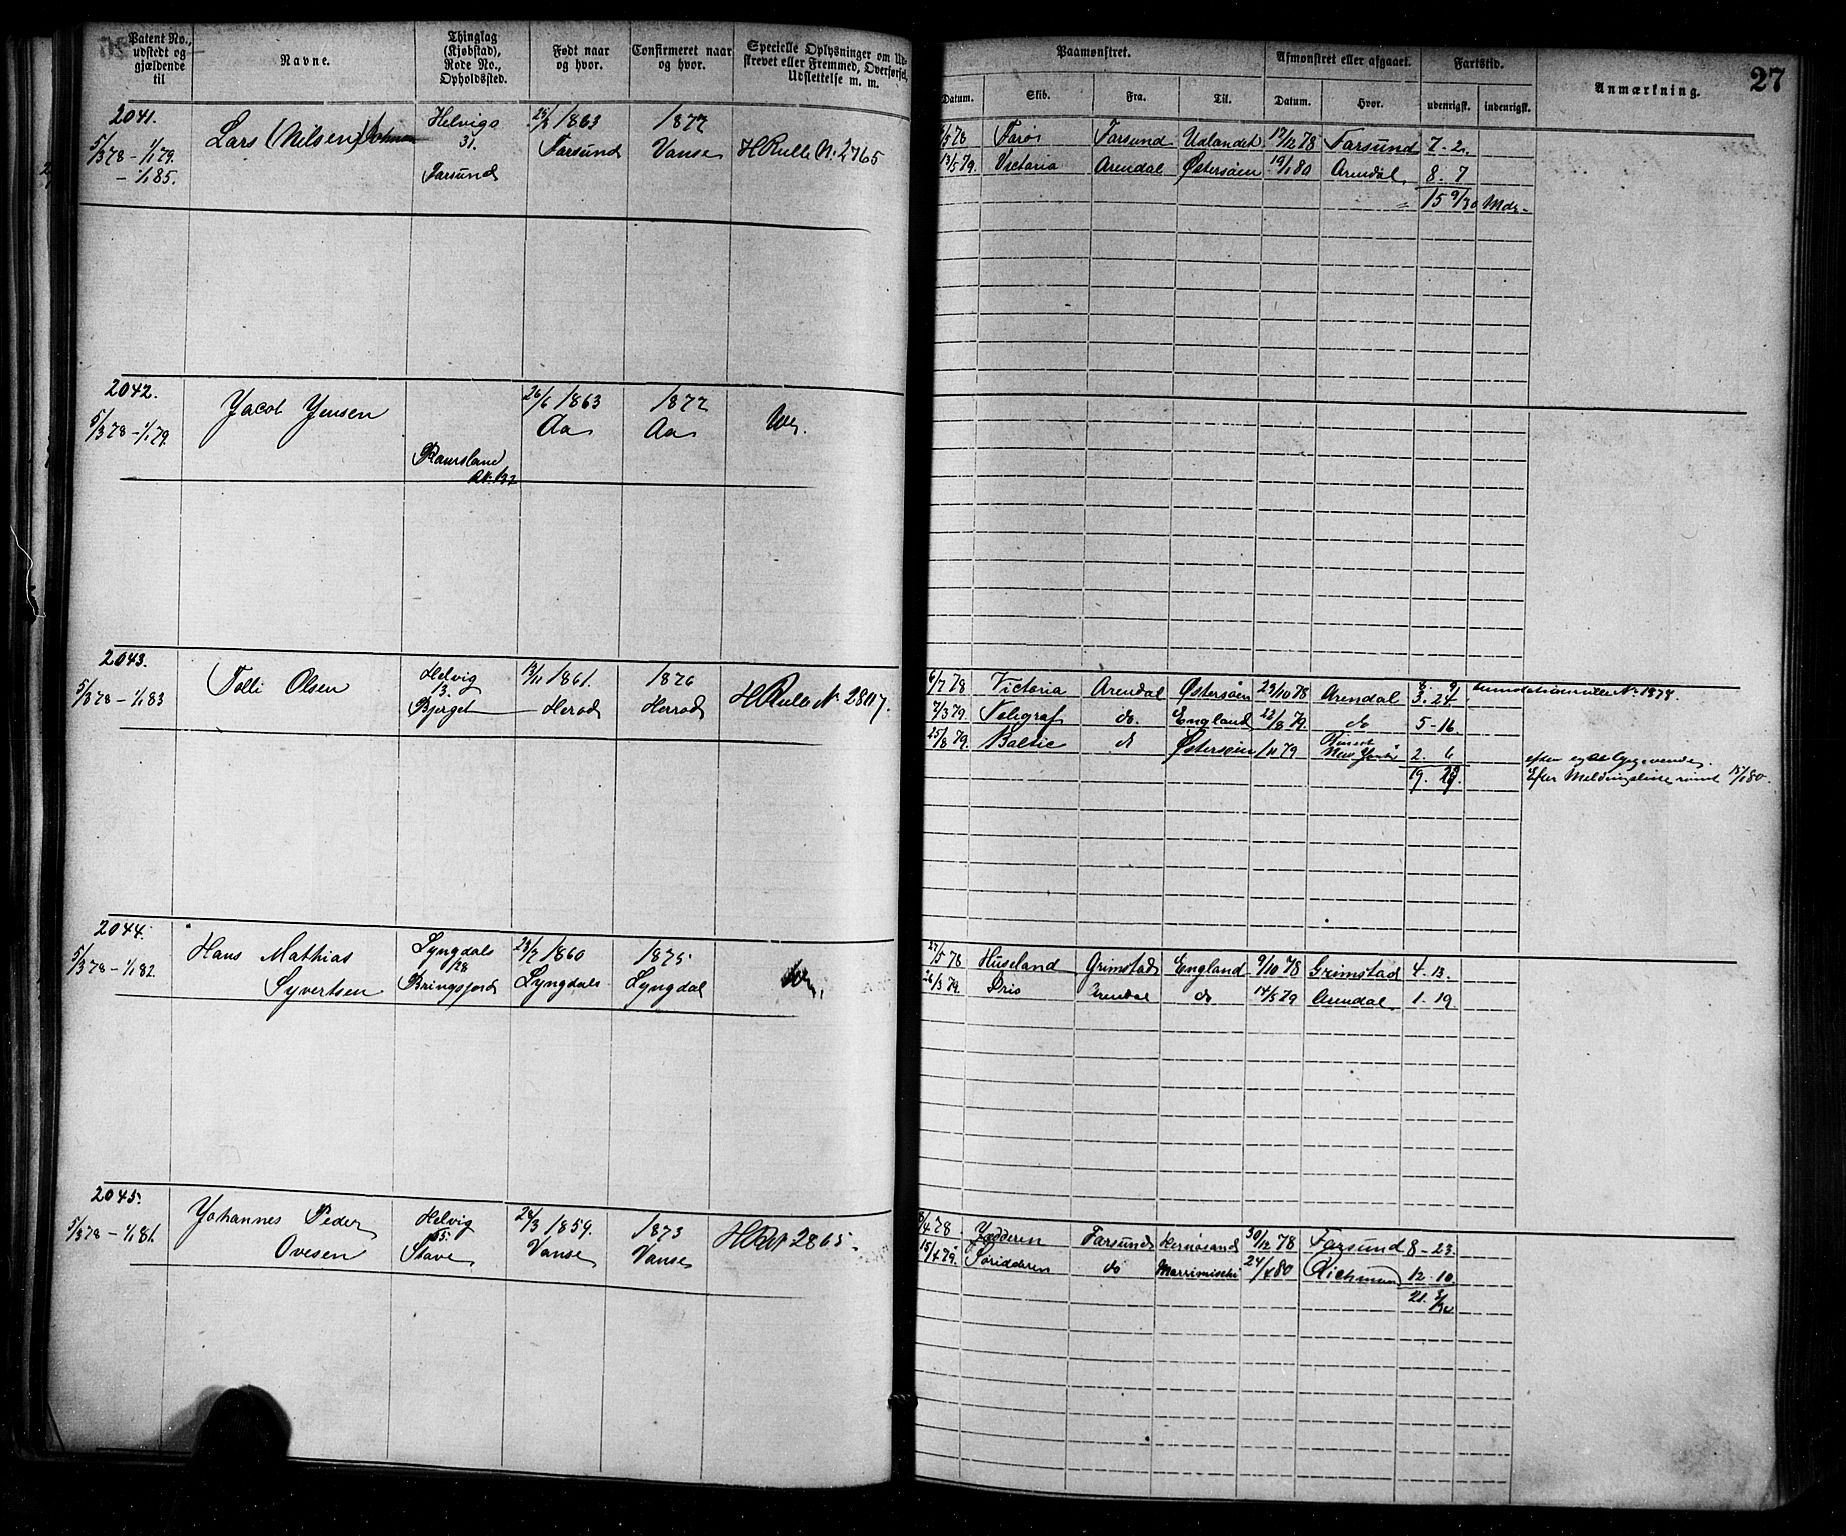 27
Patent No., udstedt og gjældende til
Navne.
Thinglag (Kjøbstad), Rode No., Opholdssted.
Født naar og hvor.
Confirmeret naar og hvor.
Specielle Oplysninger om Udskrevet eller Fremmed, Overførsel, Udslettelse m. m.
Paamønstret.
Afmønstret eller afgaaet.
Fartstid.
Anmærkning.
Datum. Skib. Fra. Til. Datum. Hvor. udenrigsk. indenrigsk.
2041.
5/3 78 - 1/1 79.
- 1/1 85.
Lars (Nilsen)
Helvigs
31.
Farsund
1863
Farsund
1877
Vanse
HRulle No 2765
/5 78 Farøs Farsund Udlandet 17/12 78 Farsund 7 - 2.
13/5 79. Victoria Arendal Østersøen 19/1 80 Arendal 8. 7
15 9/30 Mdr.
2042.
5/3 78 - 1/1 79.
Jacob Jensen
26/6 1863
Aa
1877
Aa
2043.
5/3 78 - 1/1 83
Tolli Olsen
Helvig
13.
Bjerget
13/11 1861.
Herad
1876
Herrad
HRulle No 2807.
6/7 78 Victoria Arendal Østersøen 29/10 78 Arendal 3. 24
7/3 79. Telegraf do. England 22/8 79. do 5 - 16.
25/8 79. Baltic do Østersøen 1/11 79 New York 2. 6
19.
Efter
15/1 80.
2044.
5/3 78 - 1/1 82.
Hans Mathias
Syvertsen
Lyngdals
128
Bringsfjord
28/7 1860
Lyngdals
1875
Lyngdal
27/5 78 Huseland Grimstad England 9/10 78 Grimstad 4 - 13.
26/3 79. Arendal do 14/5 79 Arendal 1 - 19.
2045.
5/3 78 - 1/1 81.
Johannes Peder
Ovesen
Helvig
55.
Stave
28/3 1859.
Vanse
1873
Vanse
2865.
/4 78 Jædderen Farsund Hernøsand 30/12 78 Farsund 8 - 23.
15/4 79. do 24/4 80 12 - 10.
21.